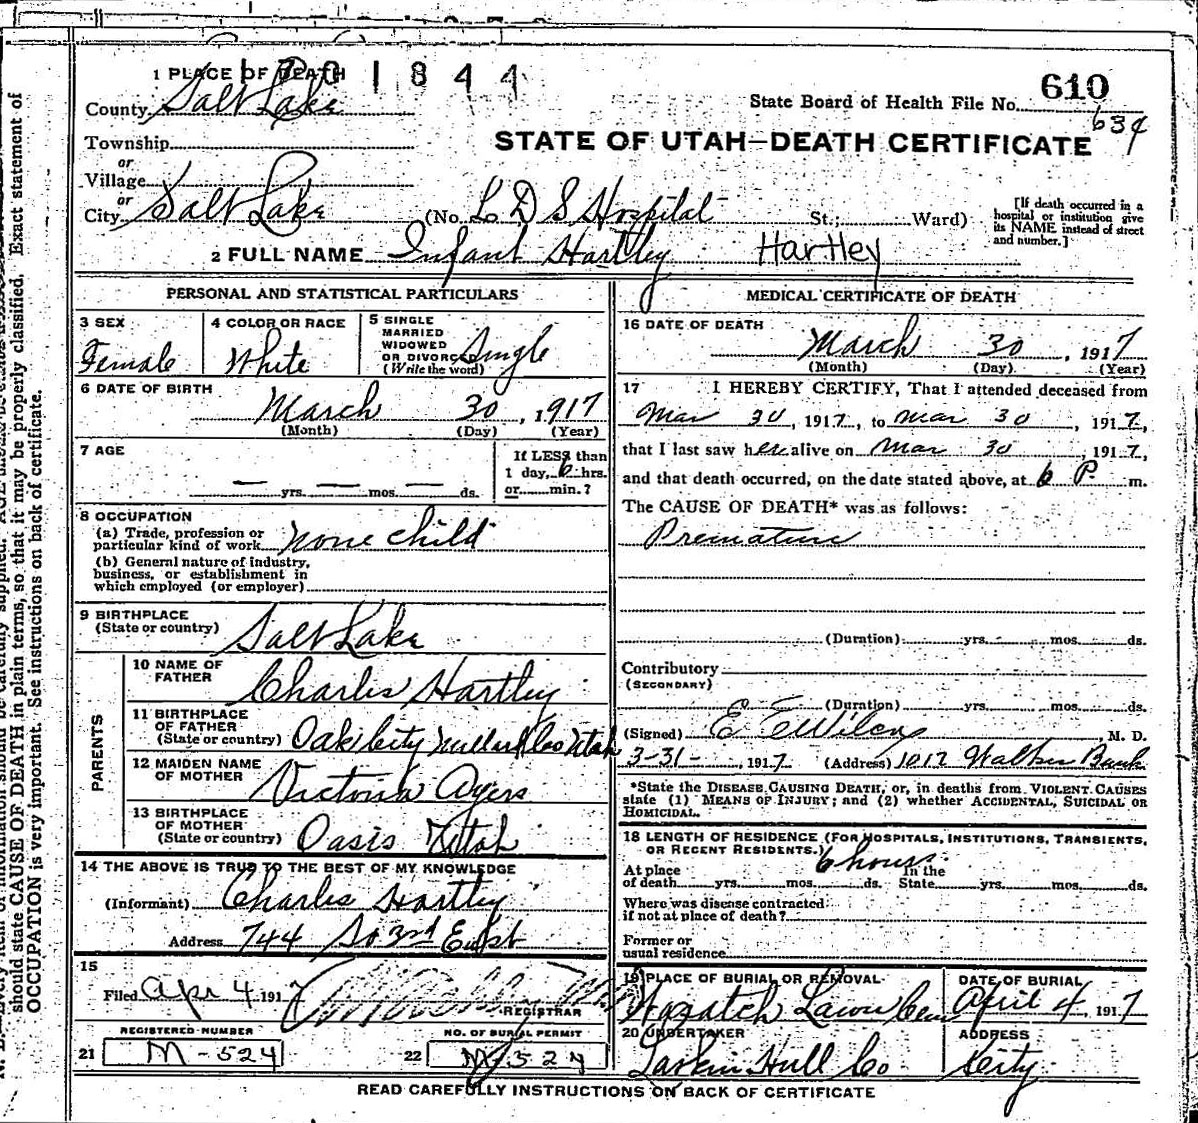 1 PLACE OF DEATH
1701844
County Salt Lake
State Board of Health File No. 610
634
Township
STATE OF UTAH—DEATH CERTIFICATE
or
Village
or
City Salt Lake (No. L D S Hospital St.; Ward)
[If death occurred in a hospital or institution give its NAME instead of street and number.]
2 FULL NAME Infant Hartley Hartley
PERSONAL AND STATISTICAL PARTICULARS
3 SEX
Female
4 COLOR OR RACE
White
5 SINGLE
MARRIED
WIDOWED
OR DIVORCED
(Write the word)
Single
6 DATE OF BIRTH
March 30, 1917
(Month) (Day) (Year)
7 AGE
— yrs. — mos. — ds.
If LESS than
1 day, 6 hrs.
or min.?
8 OCCUPATION
(a) Trade, profession or
particular kind of work none child
(b) General nature of industry,
business, or establishment in
which employed (or employer)
9 BIRTHPLACE
(State or country) Salt Lake
PARENTS
10 NAME OF
FATHER Charles Hartley
11 BIRTHPLACE
OF FATHER
(State or country) Oak City Millard Co Utah
12 MAIDEN NAME
OF MOTHER Victoria Ayers
13 BIRTHPLACE
OF MOTHER
(State or country) Oasis Utah
14 THE ABOVE IS TRUE TO THE BEST OF MY KNOWLEDGE
(Informant) Charles Hartley
Address 744 So 3rd East
15
Filed Apr 4 1917
REGISTRAR
REGISTERED NUMBER
21 M-524
NO. OF BURIAL PERMIT
22 M 524
MEDICAL CERTIFICATE OF DEATH
16 DATE OF DEATH
March 30, 1917
(Month) (Day) (Year)
17 I HEREBY CERTIFY, That I attended deceased from
Mar 30, 1917, to Mar 30, 1917,
that I last saw her alive on Mar 30, 1917,
and that death occurred, on the date stated above, at 6 P. m.
The CAUSE OF DEATH* was as follows:
Premature
(Duration) yrs. mos. ds.
Contributory
(SECONDARY)
(Duration) yrs. mos. ds.
(Signed) E E Wilcox, M. D.
3-31-, 1917 (Address) 1012 Walker Bank
*State the DISEASE CAUSING DEATH, or, in deaths from VIOLENT CAUSES
state (1) MEANS OF INJURY; and (2) whether ACCIDENTAL, SUICIDAL OR
HOMICIDAL.
18 LENGTH OF RESIDENCE (FOR HOSPITALS, INSTITUTIONS, TRANSIENTS,
OR RECENT RESIDENTS.)
6 hours
At place In the
of death yrs. mos. ds. State yrs. mos. ds.
Where was disease contracted
if not at place of death?
Former or
usual residence
19 PLACE OF BURIAL OR REMOVAL
Wasatch Lawn Cem
DATE OF BURIAL
April 4, 1917
20 UNDERTAKER
Larkin Hull Co
ADDRESS
City
READ CAREFULLY INSTRUCTIONS ON BACK OF CERTIFICATE
should state CAUSE OF DEATH in plain terms, so that it may be properly classified. Exact statement of
OCCUPATION is very important. See instructions on back of certificate.